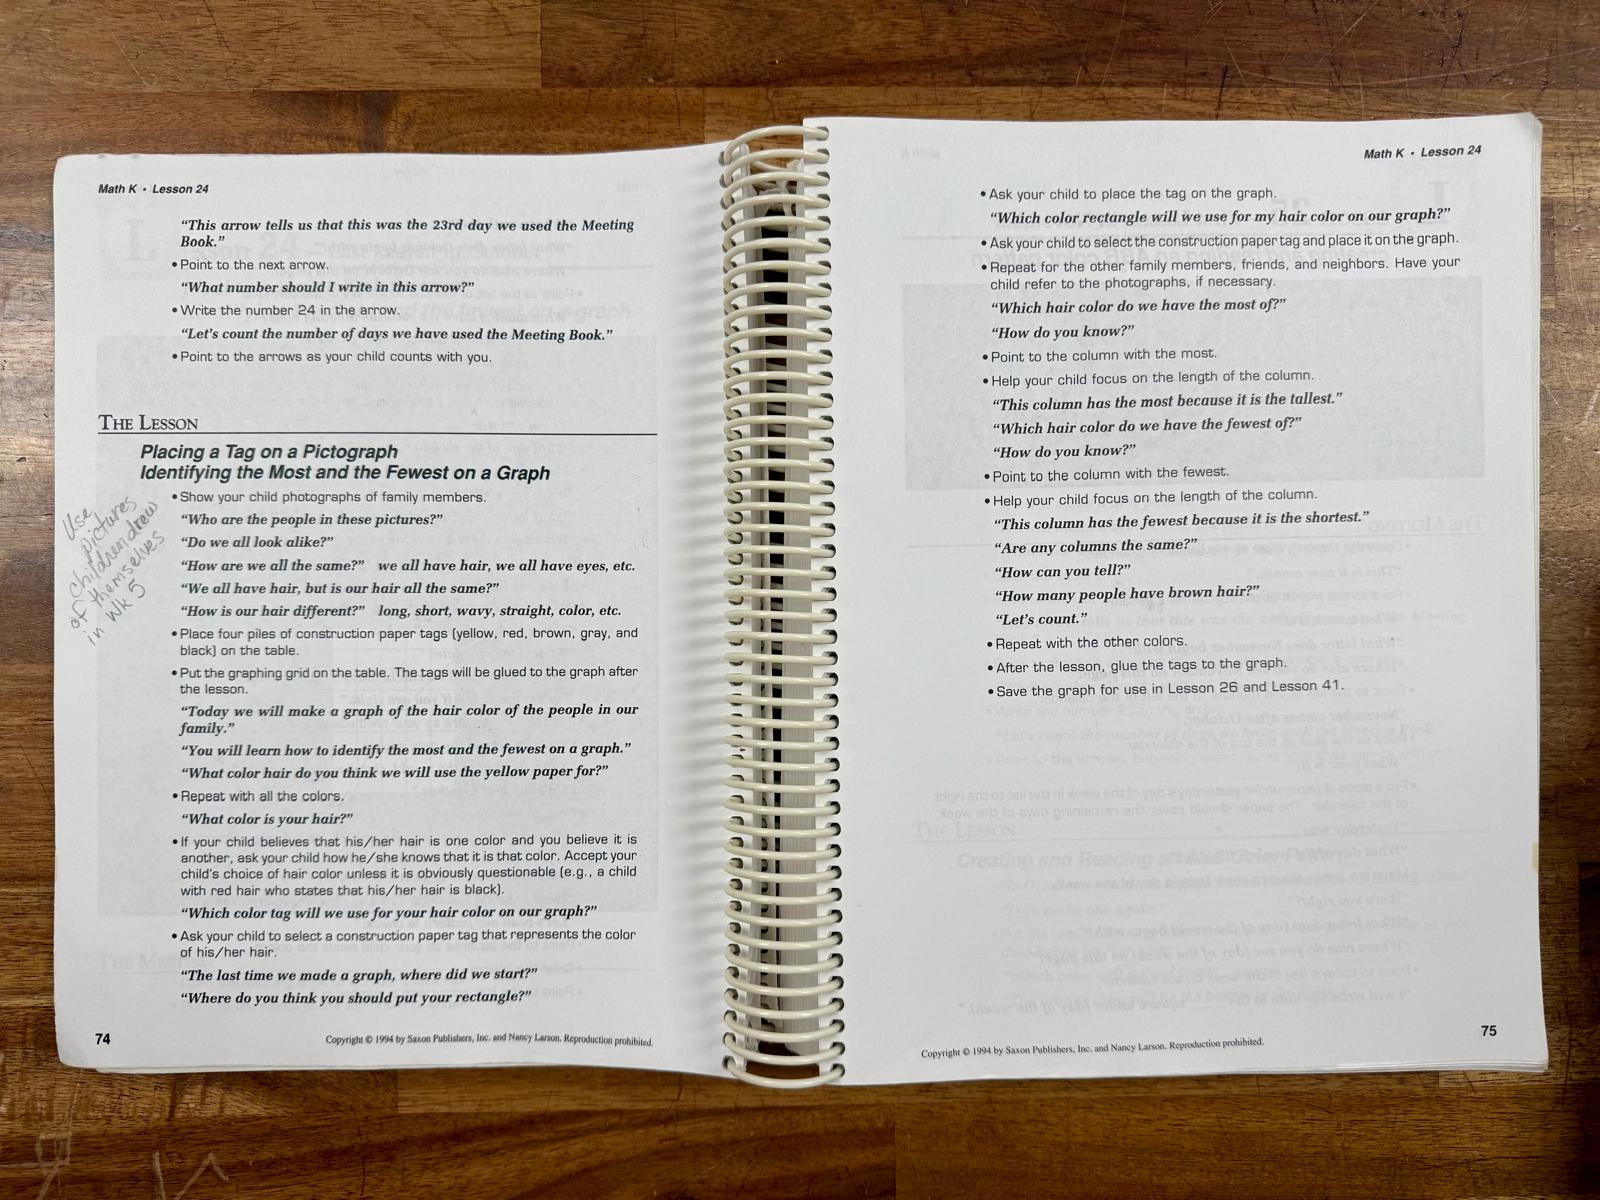 Math K • Lesson 24
“This arrow tells us that this was the 23rd day we used the Meeting
Book.”
• Point to the next arrow.
“What number should I write in this arrow?”
• Write the number 24 in the arrow.
“Let’s count the number of days we have used the Meeting Book.”
• Point to the arrows as your child counts with you.
THE LESSON
Placing a Tag on a Pictograph
Identifying the Most and the Fewest on a Graph
Use
pictures
children drew
of themselves
in Wk 5
• Show your child photographs of family members.
“Who are the people in these pictures?”
“Do we all look alike?”
“How are we all the same?” we all have hair, we all have eyes, etc.
“We all have hair, but is our hair all the same?”
“How is our hair different?” long, short, wavy, straight, color, etc.
• Place four piles of construction paper tags (yellow, red, brown, gray, and
black) on the table.
• Put the graphing grid on the table. The tags will be glued to the graph after
the lesson.
“Today we will make a graph of the hair color of the people in our
family.”
“You will learn how to identify the most and the fewest on a graph.”
“What color hair do you think we will use the yellow paper for?”
• Repeat with all the colors.
“What color is your hair?”
• If your child believes that his/her hair is one color and you believe it is
another, ask your child how he/she knows that it is that color. Accept your
child’s choice of hair color unless it is obviously questionable (e.g., a child
with red hair who states that his/her hair is black).
“Which color tag will we use for your hair color on our graph?”
• Ask your child to select a construction paper tag that represents the color
of his/her hair.
“The last time we made a graph, where did we start?”
“Where do you think you should put your rectangle?”
74
Copyright © 1994 by Saxon Publishers, Inc. and Nancy Larson. Reproduction prohibited.
Math K • Lesson 24
• Ask your child to place the tag on the graph.
“Which color rectangle will we use for my hair color on our graph?”
• Ask your child to select the construction paper tag and place it on the graph.
• Repeat for the other family members, friends, and neighbors. Have your
child refer to the photographs, if necessary.
“Which hair color do we have the most of?”
“How do you know?”
• Point to the column with the most.
• Help your child focus on the length of the column.
“This column has the most because it is the tallest.”
“Which hair color do we have the fewest of?”
“How do you know?”
• Point to the column with the fewest.
• Help your child focus on the length of the column.
“This column has the fewest because it is the shortest.”
“Are any columns the same?”
“How can you tell?”
“How many people have brown hair?”
“Let’s count.”
• Repeat with the other colors.
• After the lesson, glue the tags to the graph.
• Save the graph for use in Lesson 26 and Lesson 41.
Copyright © 1994 by Saxon Publishers, Inc. and Nancy Larson. Reproduction prohibited.
75